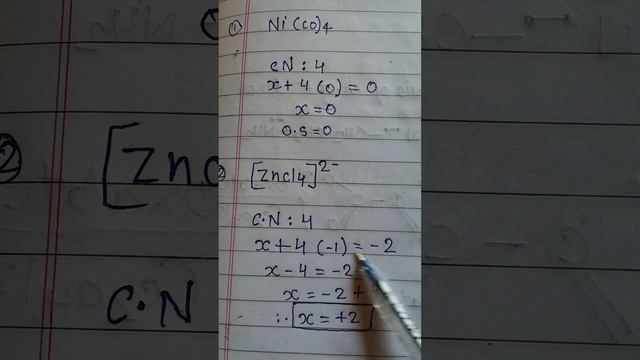 ① Ni(CO)4
CN : 4
x + 4 (0) = 0
x = 0
O.S = 0
② [ZnCl4]²⁻
C.N : 4
x + 4 (-1) = -2
x - 4 = -2
x = -2 +
∴ x = +2